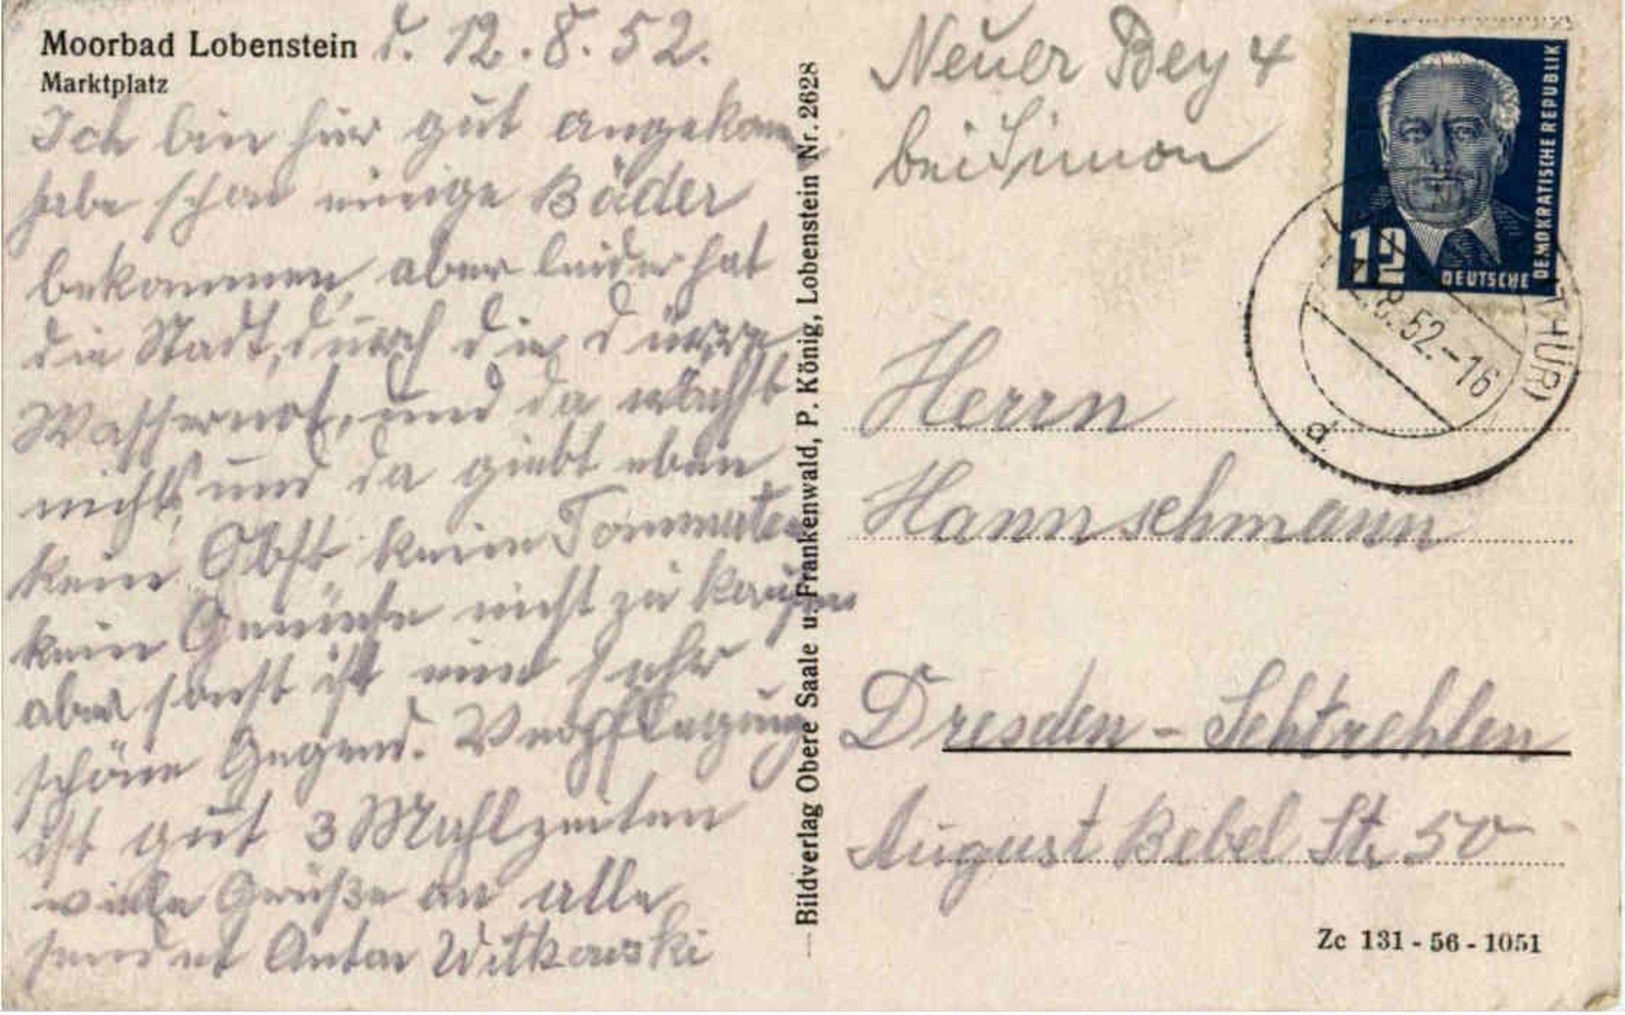 Moorbad Lobenstein d. 12.8.52.
Marktplatz
Ich bin hier gut angekom
habe schon einige Bäder
bekommen, aber leider hat
die Stadt, durch die dürre
Wassernot, und da wächst
nichts, und da giebt eben
kein Obst keine Tommaten
kein Gemüse nicht zu kaufen
aber sonst ist eine sehr
schöne Gegend. Verpflegung
ist gut 3 Mahlzeiten
viele Grüße an alle
sendet Anton Witkowski
Bildverlag Obere Saale u. Frankenwald, P. König, Lobenstein Nr. 2628
Neuer 4
bei Simon
12
DEUTSCHE
DEMOKRATISCHE REPUBLIK
8.52.-16
(THÜR)
d
Herrn
Hannschmann
Dresden - Schtrehlen
August Bebel Str 50
Zc 131 - 56 - 1051